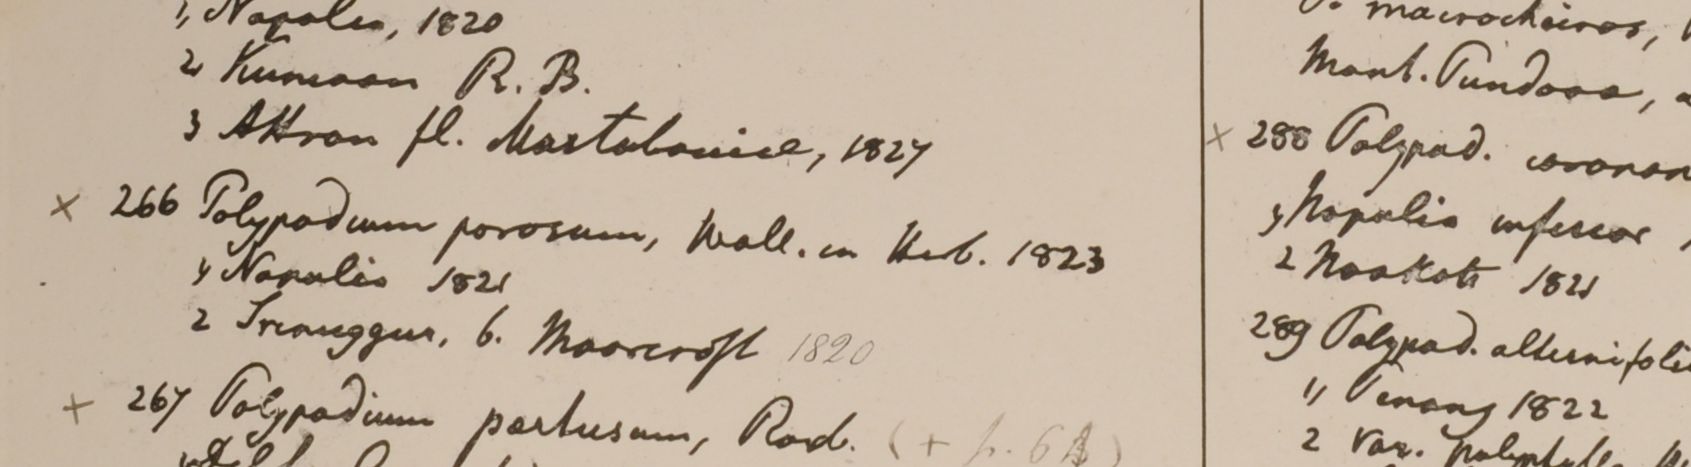 1, Napalia, 1820
2 Kumaon R. B.
3 Attran fl. Martabaniae, 1827
× 266 Polypodium porosum, Wall. in Herb. 1823
1, Napalia 1821
2 Sreenuggur, b. Moorcroft 1820
× 267 Polypodium pertusum, Roxb.
macrocheiros,
Mont. Pundooa,
× 288 Polypod. coronan
1, Napalia inferior
2 Noakote 1821
289 Polypod. alternifoli
1, Penang 1822
2 Var. polyphylla